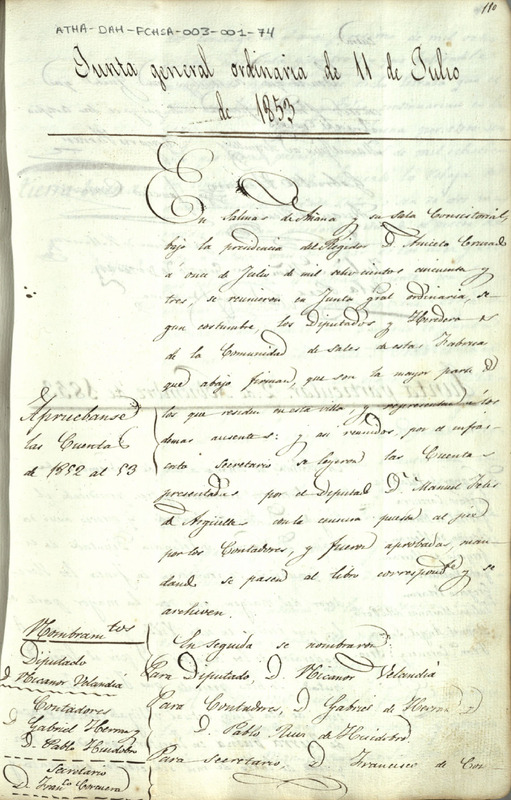 110
ATHA-DAH-FCHSA-003-001-74
Junta general ordinaria de 11 de Julio
de 1853
En Salinas de Añana y su Sala Consistorial,
bajo la presidencia del Regidor D. Aniceto
á once de Julio de mil ochocientos cincuenta y
tres, se reunieron en Junta gral ordinaria, se-
gun costumbre, los Diputados y Herederos
de la Comunidad de sales de estas Fabricas
que abajo firman, que son la mayor parte de
los que residen en esta villa, y representan á los
demas ausentes: y asi reunidos, por el infras-
crito Secretario se leyeron las Cuentas
presentadas por el Diputado D. Manuel
de Argüelles con la censura puesta al pie
por los Contadores, y fueron aprobadas, man-
dando se pasen al libro correspondte y se
archiven.
Apruebanse
las Cuentas
de 1852 al 53
En seguida se nombraron
Para Diputado, D. Nicanor Velandiá
Para Contadores, D. Gabriel de
D. Pablo Ruiz de Huidobro.
Para Secretario, D. Francisco de
Nombramtos
Diputado
D. Nicanor Velandiá
Contadores
D. Gabriel
D. Pablo Huidobro
Secretario
D. Franco Corcuera